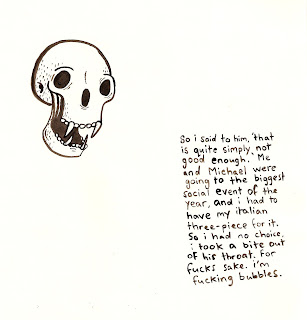 So i said to him, 'that
is quite simply not
good enough.' Me
and Michael were
going to the biggest
social event of the
year, and i had to
have my italian
three-piece for it.
So i had no choice,
i took a bite out
of his throat. For
fucks sake. i'm
fucking bubbles.